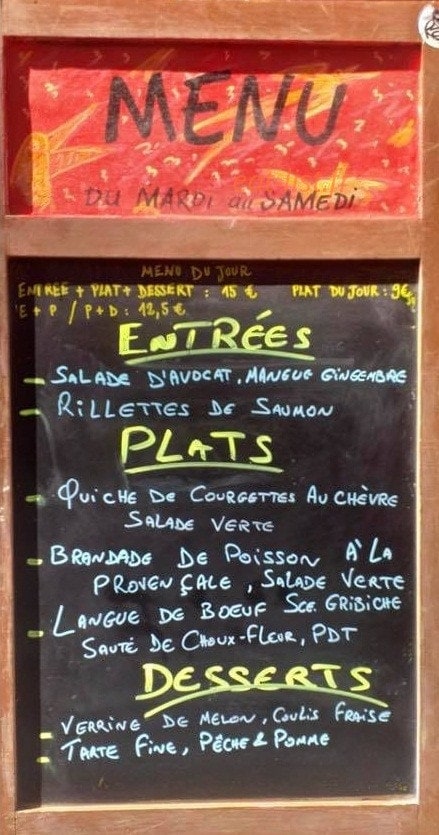 MENU
DU MARDI au SAMEDI
MENU DU JOUR
ENTRÉE + PLAT + DESSERT : 15 € PLAT DU JOUR : 9€
E + P / P + D : 12,5 €
ENTRÉES
- SALADE D'AVOCAT, MANGUE GINGEMBRE
- RILLETTES DE SAUMON
PLATS
- QUICHE DE COURGETTES AU CHÈVRE
SALADE VERTE
- BRANDADE DE POISSON À LA
PROVENÇALE, SALADE VERTE
- LANGUE DE BOEUF SCE. GRIBICHE
SAUTÉ DE CHOUX-FLEUR, PDT
DESSERTS
- VERRINE DE MELON, COULIS FRAISE
- TARTE FINE, PÊCHE & POMME